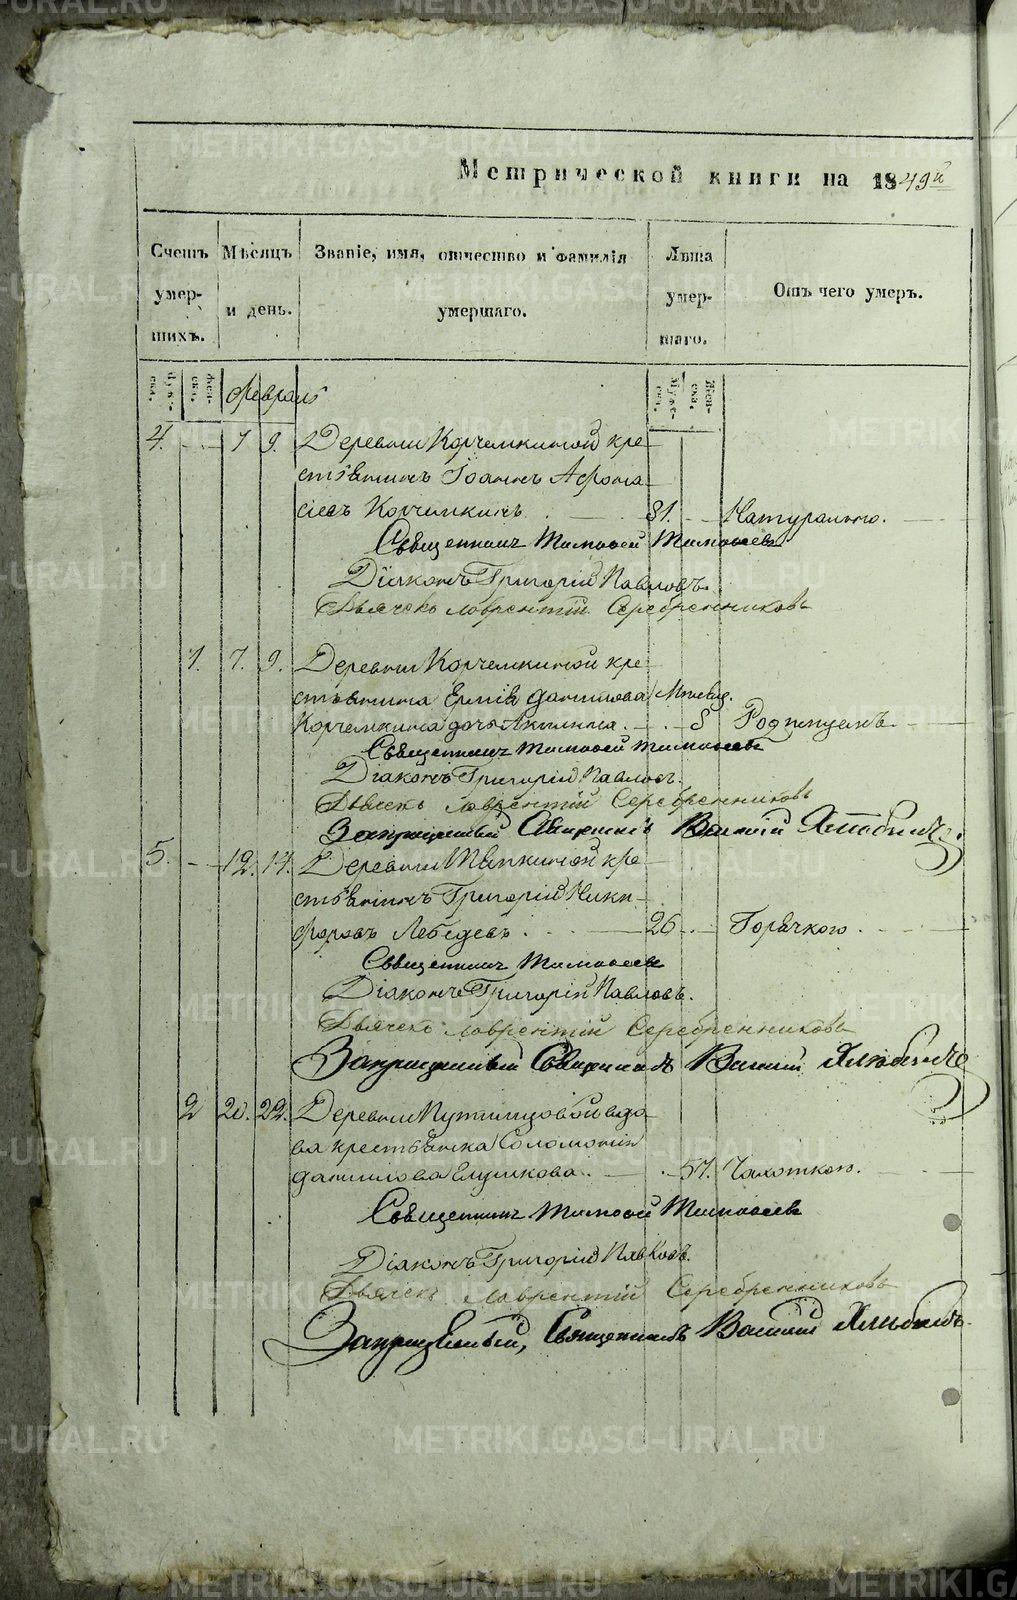 METRIKI.GASO-URAL.RU
Метрической книги на 1849й
Счетъ умер- шихъ.
Мѣсяцъ и день.
Званіе, имя, отчество и фамилія умершаго.
Лѣта умер- шаго.
Отъ чего умеръ.
Муже- ска. Жен- ска. Февраль Муже- ска. Жен- ска.
4. 7 9. Деревни Корчемкиной кре-
стьянинъ Іоаннъ Афона-
сіевъ Корчемкинъ 81. Натурально.
Священникъ Тимофей Тимофеевъ
Діаконъ Григорій Павловъ.
Дьячекъ Лаврентій Серебренниковъ
1. 7. 9. Деревни Корчемкиной кре-
стьянина Ермія Данилова Мѣсяц.
Корчемкина дочь Акилина. 8 Родимцемъ.
Священникъ Тимофей Тимофеевъ
Діаконъ Григорій Павловъ.
Дьячекъ Лаврентій Серебренниковъ
Запрещенный Священникъ
5. 12. 14. Деревни кре-
стьянинъ Григорій Ники-
форовъ Лебедевъ 26 Горячкою.
Священникъ Тимофеевъ
Діаконъ Григорій Павловъ.
Дьячекъ Лаврентій Серебренниковъ
Запрещенный Священникъ
2 20. 22. Деревни Путимцовой вдо-
ва крестьянка Соломонія
Данилова 57. Чахоткою.
Священникъ Тимофей Тимофеевъ
Діаконъ Григорій Павловъ.
Дьячекъ Лаврентій Серебренниковъ
Запрещенный, Священникъ